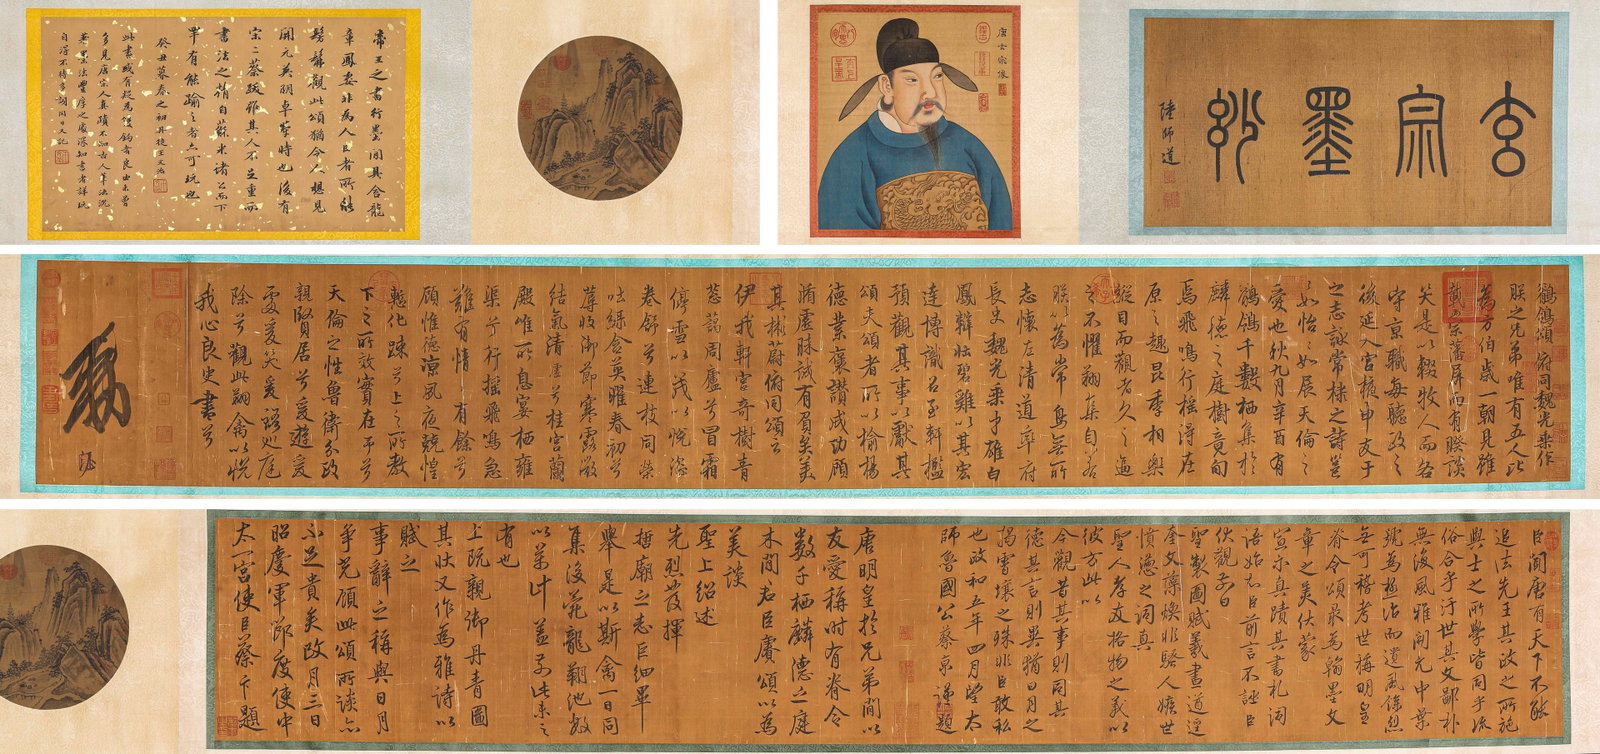 玄宗墨妙
陸師道
唐玄宗像
帝王之書行墨間具含龍
章鳳姿非為人臣者所能
髣髴觀此頌猶令人想見
開元英明卓犖時也後有
宋二蔡跋雖其人不足重而
書法之精自蘇米諸公而下
罕有能踰之者亦可玩也
癸丑暮春之初丹徒王文治
此書或有疑為雙鈎者良由未曾
多見唐宋人真蹟不知古人筆法沉
着墨法豐厚之處深知書者詳玩
自得不待多詞同日又記
鶺鴒頌俯同魏光乘作
朕之兄弟唯有五人比
為方伯歲一朝見雖
載崇藩屏而有暌談
笑是以輟牧人而各
守京職每聽政之
後延入宮掖申友于
之志詠常棣之詩邕
〻如怡〻如展天倫之
愛也秋九月辛酉有
鶺鴒千數栖集於
麟德之庭樹竟旬
焉飛鳴行搖得在
原之趣昆季相樂
縱目而觀者久之逼
之不懼翔集自若
朕以為常鳥無所
志懷左清道率府
長史魏光乘才雄白
鳳辯壯碧雞以其宏
達博識召至軒檻
預觀其事以獻其
頌夫頌者所以揄揚
德業褒讚成功顧
循虛昧誠有負矣美
其彬蔚俯同頌云
伊我軒宮奇樹青
蔥藹周廬兮冒霜
停雪以茂以悅恣
卷舒兮連枝同榮
吐綠含英曜春初兮
蓐收御節寒露微
結氣清虛兮桂宮蘭
殿唯所息宴栖雍
渠兮行搖飛鳴急
難有情情有餘兮
顧惟德涼夙夜兢惶
慙化疎兮上之所教
下之所效實在予兮
天倫之性魯衛分政
親賢居兮爰遊爰
處爰笑爰語巡庭
除兮觀此翩禽以悅
我心良史書兮
敕
臣聞唐有天下不能
追法先王其政之所施
與士之所學皆同乎流
俗合乎汙世其文鄙朴
無復風雅開元中葉
號為極治而遺風餘烈
無可稽考世稱明皇
脊令頌最為翰墨文
章之美伏蒙
宣示真蹟其書札詞
語始知臣前言不誣臣
伏觀前日
聖製圖賦羲畫道逕
奎文藻煥非騷人嫉世
憤懣之詞真
聖人孝友格物之義以
彼方此以
今觀昔其事則同其
德其言則異猶日月之
揭霄壤之殊非臣敢私
也政和五年四月望太
師魯國公蔡京謹題
唐明皇於兄弟間以
友愛稱時有脊令
數千栖麟德之庭
木間右臣賡頌以為
美談
聖上紹述
先烈發揮
哲廟之志臣細畢
舉是以斯禽一日同
集後苑龍翔池數
以萬計蓋前此未之
有也
上既親御丹青圖
其狀又作為雅詩以
賦之
事辭之稱與日月
爭光顧此頌所談亦
不足貴矣政月三日
昭慶軍節度使中
太一宮使臣蔡卞題